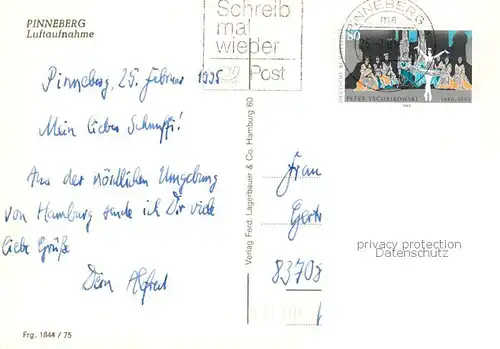 PINNEBERG
Luftaufnahme
Schreib
mal
wieder
Post
PINNEBERG
ma
80
PETER TSCHAIKOWSKI 1840-1893
Pinneberg, 25. Februar 1995
Mein lieber Schnuffi!
Aus der nördlichen Umgebung
von Hamburg sende ich Dir viele
liebe Grüße
Dein Alfred
Verlag Ferd. Lagerbauer & Co. Hamburg 60
Frau
Gertr
83708
privacy protection
Datenschutz
Frg. 1844 / 75